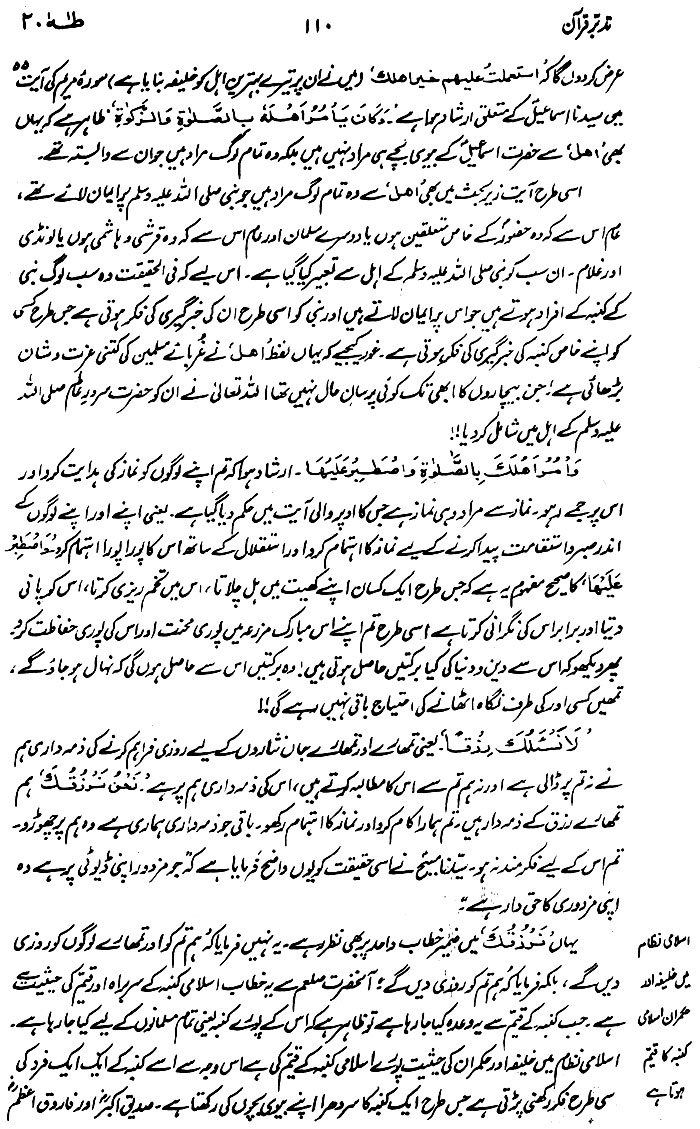 تدبر قرآن ۱۱۰ طٰہٰ ۲۰
عرض کردوں گا کہ استعملت علیهم خیر اهلک، (میں نے ان پر تیرے بہترین اہل کو خلیفہ بنایا ہے) سورۂ مریم کی آیت ۵۵
میں سیدنا اسماعیلؑ کے متعلق ارشاد ہوا ہے ’وَكَانَ يَأْمُرُ أَهْلَهُ بِالصَّلٰوةِ وَالزَّكٰوةِ‘ ظاہر ہے کہ یہاں
بھی ’اهل‘ سے حضرت اسماعیلؑ کے بیوی بچے ہی مراد نہیں ہیں بلکہ وہ تمام لوگ مراد ہیں جو ان سے وابستہ تھے۔
اسی طرح آیت زیر بحث میں بھی ’اهل‘ سے وہ تمام لوگ مراد ہیں جو نبی صلی اللہ علیہ وسلم پر ایمان لائے تھے،
عام اس سے کہ وہ حضورؐ کے خاص متعلقین ہوں یا دوسرے مسلمان اور عام اس سے کہ وہ قرشی و ہاشمی ہوں یا لونڈی
اور غلام۔ ان سب کو نبی صلی اللہ علیہ وسلم کے اہل سے تعبیر کیا گیا ہے۔ اس لیے کہ فی الحقیقت وہ سب لوگ نبی
کے کنبہ کے افراد ہوتے ہیں جو اس پر ایمان لاتے ہیں اور نبی کو اسی طرح ان کی خبرگیری کی فکر ہوتی ہے جس طرح کسی
کو اپنے خاص کنبہ کی خبرگیری کی فکر ہوتی ہے۔ غور کیجیے کہ یہاں لفظ ’اهل‘ نے غربائے مسلمین کی کتنی عزت و شان
بڑھائی ہے! جن بیچاروں کا ابھی تک کوئی پرسانِ حال نہیں تھا اللہ تعالیٰ نے ان کو حضرت سرورِ عالم صلی اللہ
علیہ وسلم کے اہل میں شامل کر دیا!!
وَأْمُرْ أَهْلَكَ بِالصَّلٰوةِ وَاصْطَبِرْ عَلَيْهَا۔ ارشاد ہوا کہ تم اپنے لوگوں کو نماز کی ہدایت کرو اور
اس پر جمے رہو۔ نماز سے مراد وہی نماز ہے جس کا اوپر والی آیت میں حکم دیا گیا ہے۔ یعنی اپنے اور اپنے لوگوں کے
اندر صبر و استقامت پیدا کرنے کے لیے نماز کا اہتمام کرو اور استقلال کے ساتھ اس کا پورا پورا اہتمام کرو ’وَاصْطَبِرْ
عَلَيْهَا‘ کا صحیح مفہوم یہ ہے کہ جس طرح ایک کسان اپنے کھیت میں ہل چلاتا، اس میں تخم ریزی کرتا، اس کو پانی
دیتا اور برابر اس کی نگرانی کرتا ہے اسی طرح تم اپنے اس مبارک مزرعہ میں پوری محنت اور اس کی پوری حفاظت کرو۔
پھر دیکھو کہ اس سے دین و دنیا کی کیا برکتیں حاصل ہوتی ہیں! وہ برکتیں اس سے حاصل ہوں گی کہ نہال ہو جاؤ گے،
تمھیں کسی اور کی طرف نگاہ اٹھانے کی احتیاج باقی نہیں رہے گی!!
’لَا نَسْئَلُكَ رِزْقًا‘۔ یعنی تمھارے اور تمھارے جاں نثاروں کے لیے روزی فراہم کرنے کی ذمہ داری ہم
نے نہ تم پر ڈالی ہے اور نہ ہم تم سے اس کا مطالبہ کرتے ہیں، اس کی ذمہ داری ہم پر ہے ’نَحْنُ نَرْزُقُكَ‘ ہم
تمھارے رزق کے ذمہ دار ہیں۔ تم ہمارا کام کرو اور نماز کا اہتمام رکھو۔ باقی جو ذمہ داری ہماری ہے وہ ہم پر چھوڑو۔
تم اس کے لیے فکر مند نہ ہو۔ سیدنا مسیحؑ نے اسی حقیقت کو یوں واضح فرمایا ہے کہ ’جو مزدور اپنی ڈیوٹی پر ہے وہ
اپنی مزدوری کا حق دار ہے‘۔
یہاں ’نَرْزُقُكَ‘ میں ضمیر خطاب واحد پر بھی نظر رہے۔ یہ نہیں فرمایا کہ ہم تم کو اور تمھارے لوگوں کو روزی
دیں گے، بلکہ فرمایا کہ ہم تم کو روزی دیں گے؛ آنحضرت صلعم سے یہ خطاب اسلامی کنبہ کے سربراہ اور قیّم کی حیثیت سے
ہے۔ جب کنبہ کے قیّم سے یہ وعدہ کیا جا رہا ہے تو ظاہر ہے کہ اس کے پورے کنبہ یعنی تمام مسلمانوں کے لیے کیا جا رہا ہے۔
اسلامی نظام میں خلیفہ اور حکمران کی حیثیت پورے اسلامی کنبہ کے قیّم کی ہے اس وجہ سے اسے کنبہ کے ایک ایک فرد کی
سی طرح فکر رکھنی پڑتی ہے جس طرح ایک کنبہ کا سردھرا اپنے بیوی بچوں کی رکھتا ہے۔ صدیق اکبرؓ اور فاروق اعظمؓ
اسلامی نظام
میں خلیفہ اور
حکمران اسلامی
کنبہ کا قیّم
ہوتا ہے